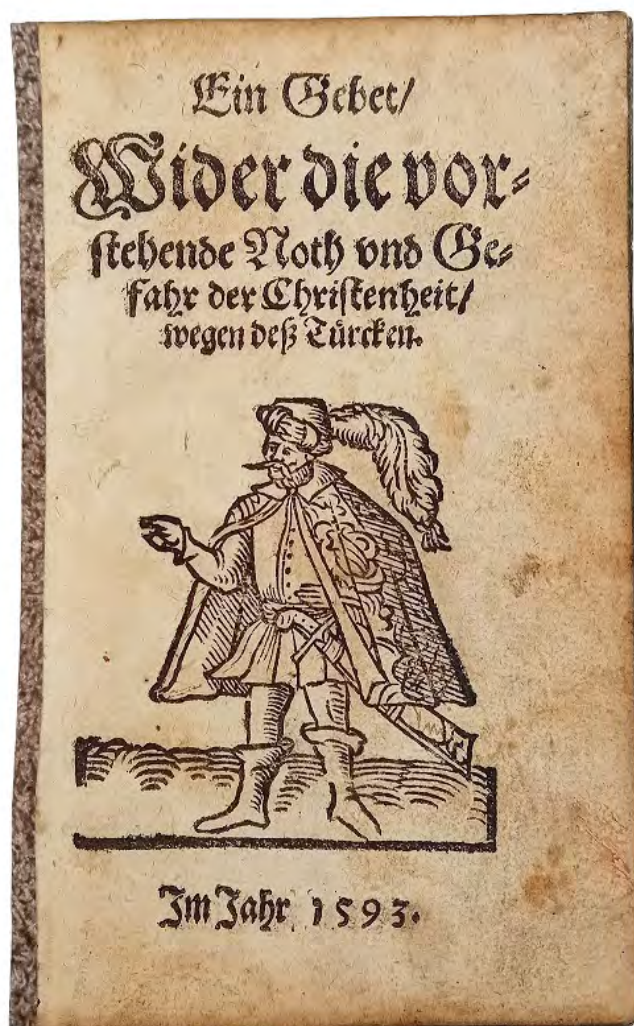 Ein Gebet/
Wider die vor⸗
stehende Noth vnd Ge⸗
fahr der Christenheit/
wegen deß Türcken.
Im Jahr 1593.